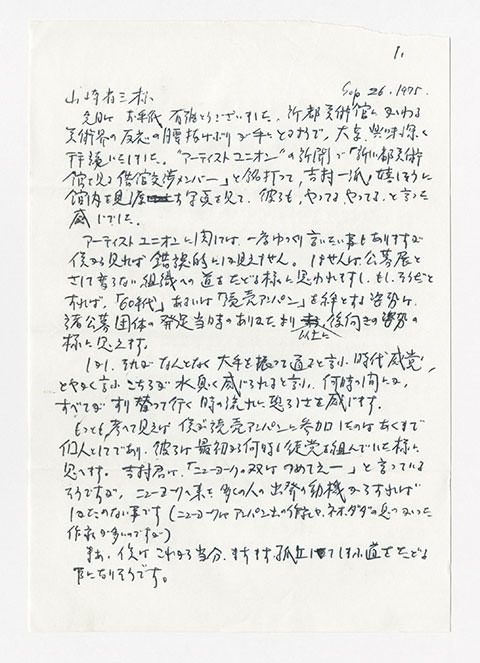 1.
Sep 26, 1975.
山崎省三様
先日は お手紙 有難とうございました。新都美術館にまつわる
美術界の反応の腰抜けぶりが手にとる様で、大変興味深く
拝読いたしました。"アーティスト ユニオン"の新聞で「新しい都美術
館を見る借館交渉メンバー」と銘打って、吉村一派が嬉しそうに
館内を見 写真を見て、彼らも、やってる やってる、と言った
感じでした。
アーティスト ユニオンに関しては、一度ゆっくり言いたい事もありますが
僕から見れば 錯誤的にしか見えません。しょせんは公募展と
さして変らない組織への道をたどる様に思われますし、もしそうだと
すれば、「60年代」あるいは「読売アンパン」を絆とする姿勢は、
諸公募団体の発足当時のありかたより 以上に後向きの姿勢の
様に思えます。
しかし、それがなんとなく大手を振って通ると言う時代感覚、
とやかく言うこちらが水臭く感じられると言う、何時の間にか、
すべてがすり替って行く時の流れに恐ろしさを感じます。
もっとも、考えて見れば 僕が読売アンパンに参加したのはあくまで
個人としてであり、彼らは最初から何時も徒党を組んでいた様に
思えます。吉村君は、「ニューヨークの奴はつめてえー」と言っている
そうですが、ニューヨークへ来た多くの人の出発の動機からすれば
しかたのない事です(ニューヨークは アンパン出の作家や、ネオ・ダダの
作家が多いのですが)
まあ、僕は これから当分、ますます孤立して 道をたどる
事になりそうです。